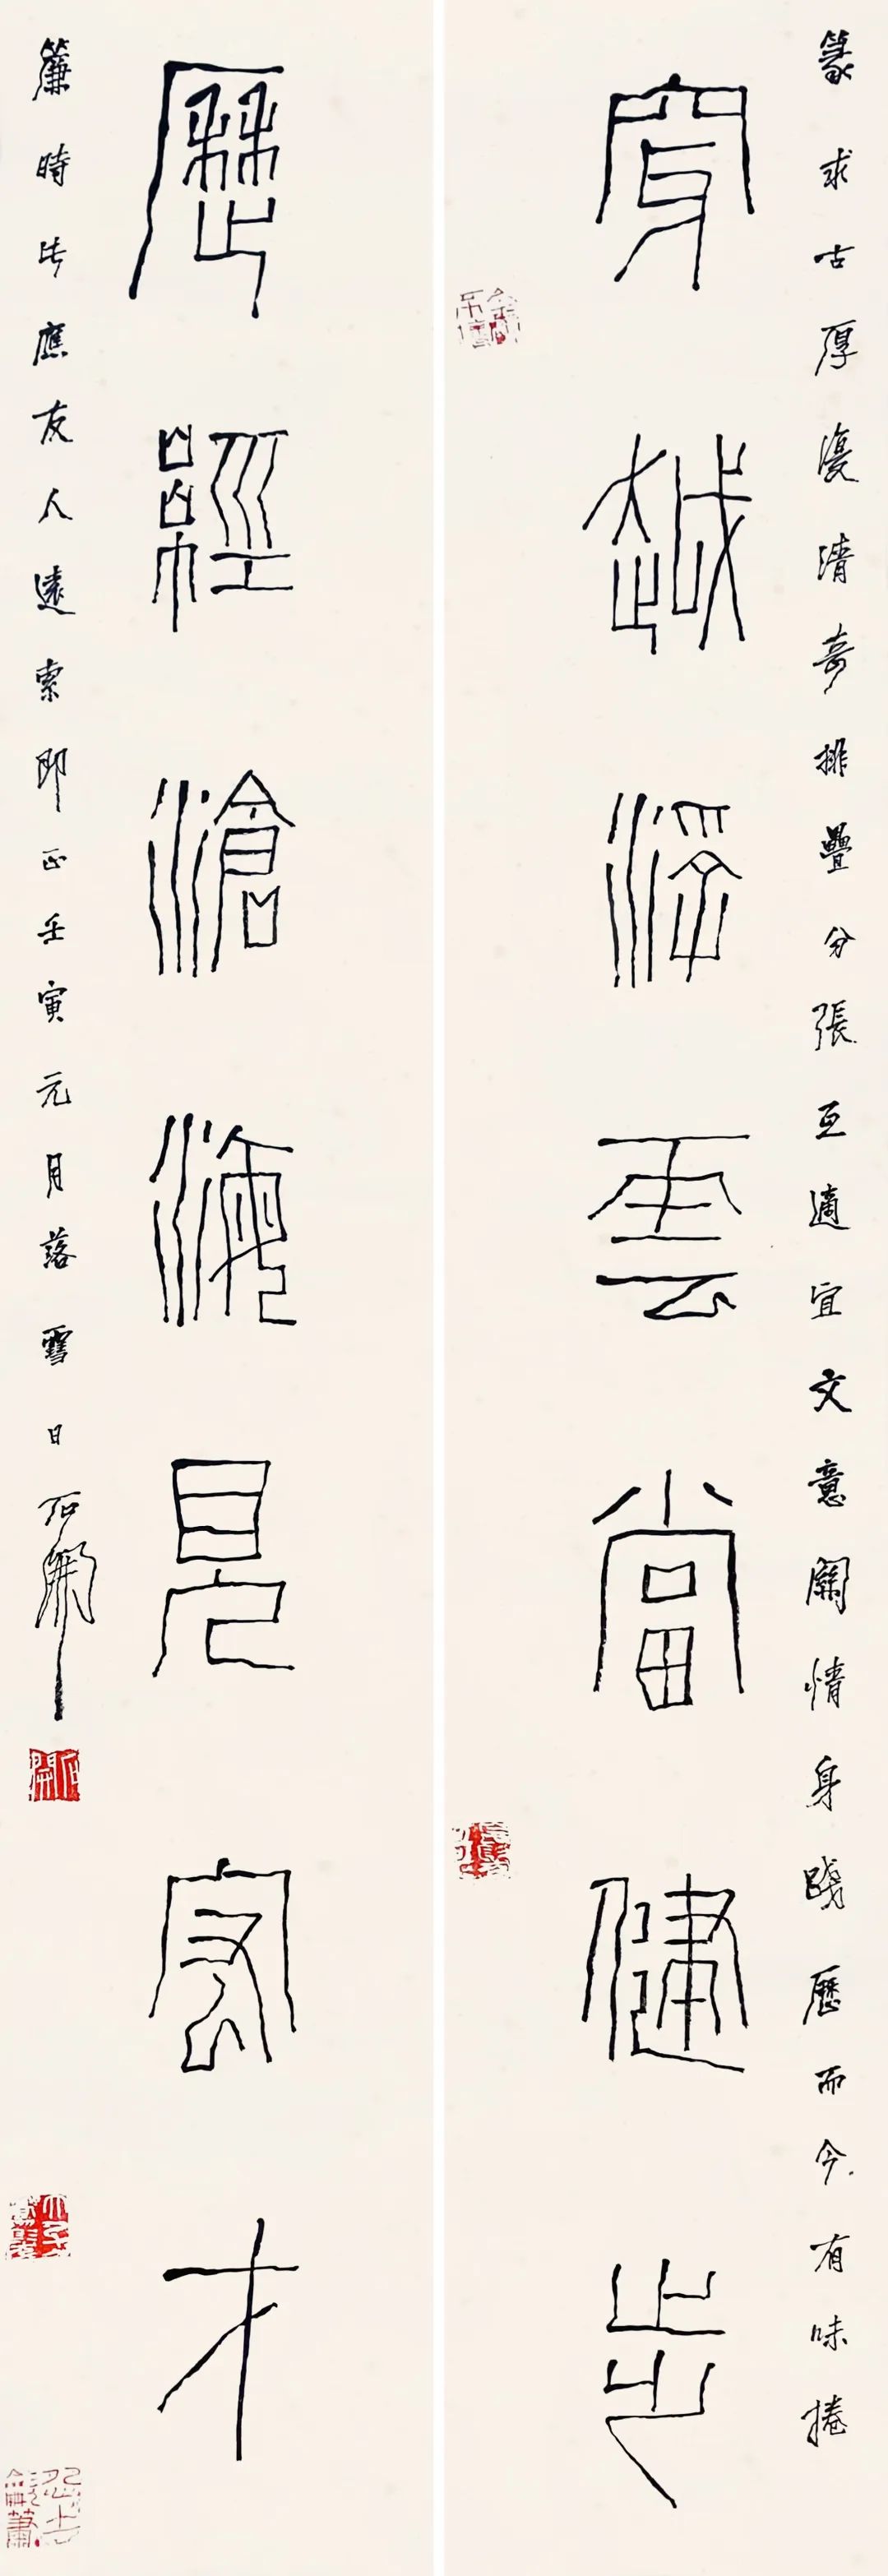 篆求古厚復清奇排疊分張互適宜文意關情身踐歷而今有味捲
穿越浮雲當健步
歷經滄海見宏才
簾時此應友人遠索即正壬寅元月落雪日石開
石開